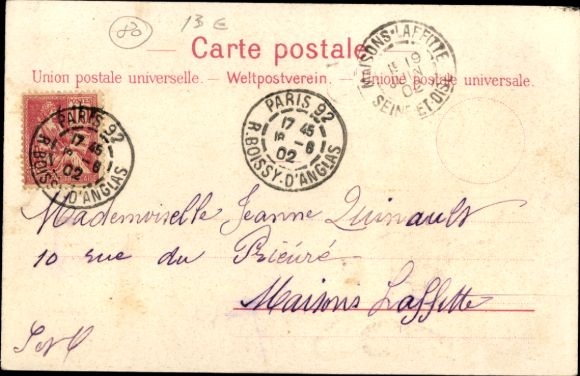 80
13 €
Carte postale
Union postale universelle. – Weltpostverein. – Unione postale universale.
MAISONS-LAFFITTE
19
02
SEINE-ET-OISE
PARIS 92
17 45
18 - 6
02
R. BOISSY-D'ANGLAS
PARIS 92
17 45
- 6
02
R. BOISSY-D'ANGLAS
Mademoiselle Jeanne Quinault
10 rue du Prieuré
Maisons Laffette